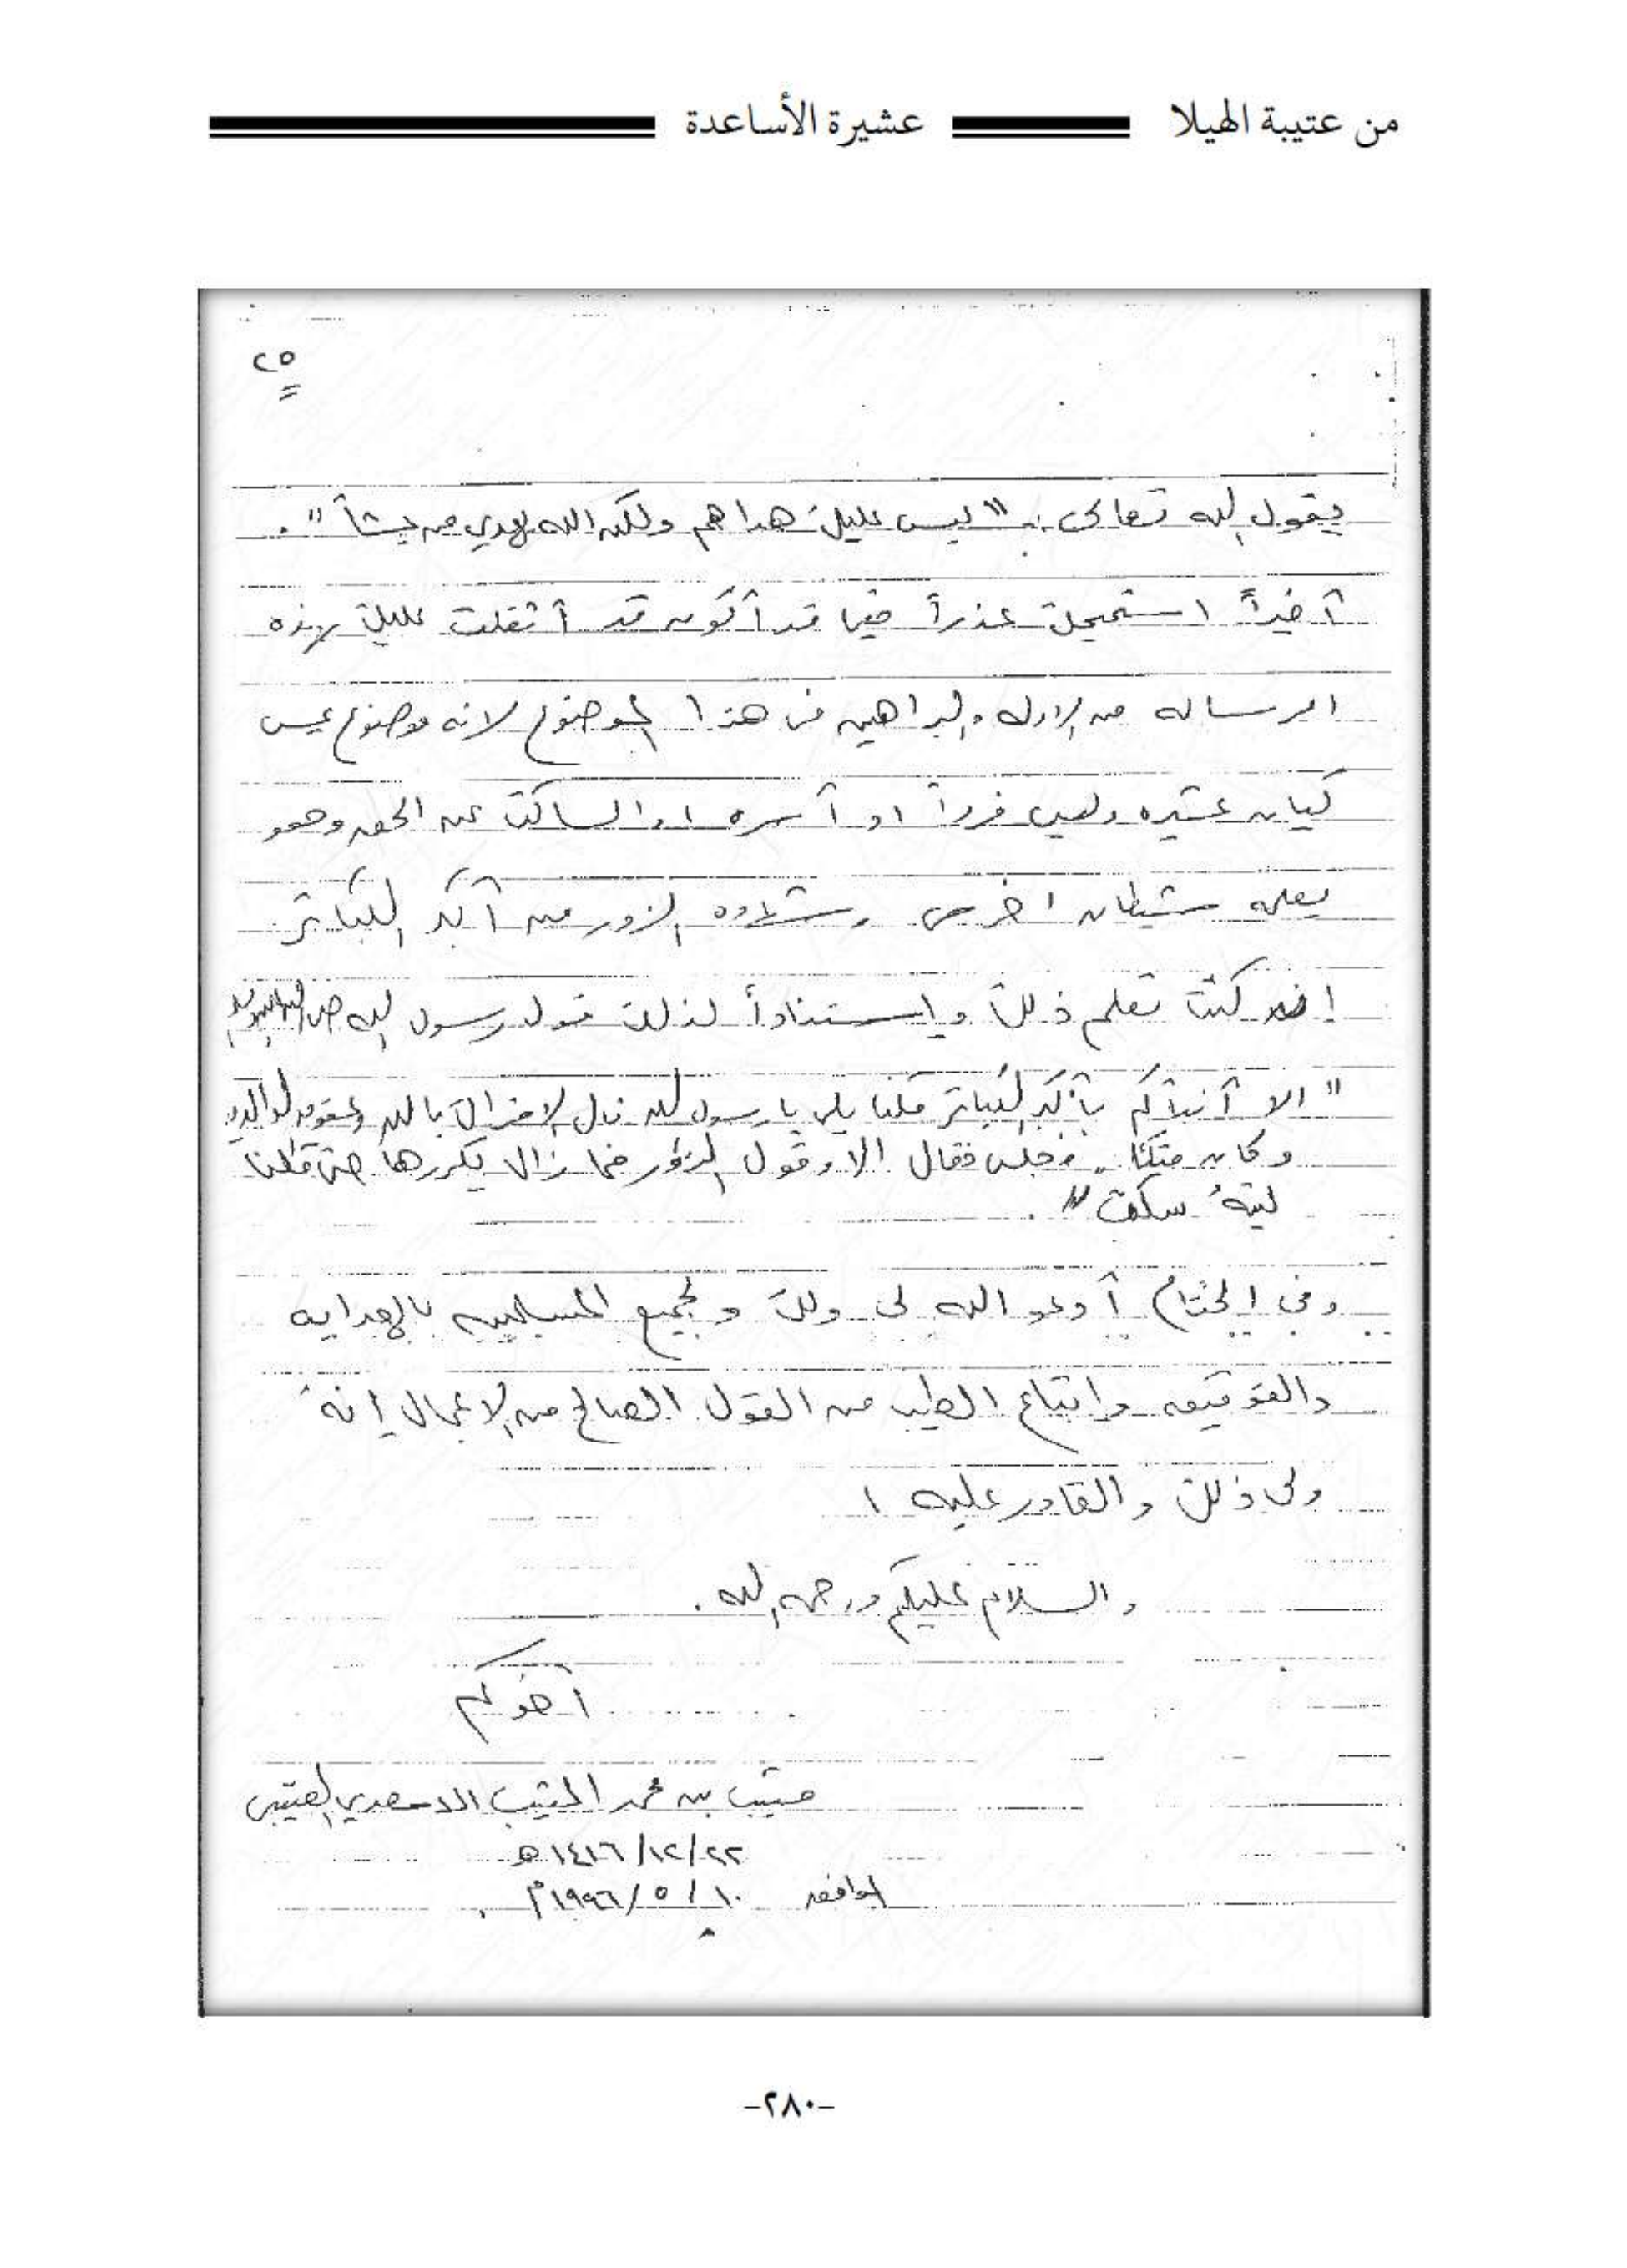 من عتيبة الهيلا عشيرة الأساعدة
٢٥
يقول الله تعالى :ـ " ليس عليك هداهم ولكن الله يهدي من يشأ " .
أخيراً استميحك عذراً فيما قد أكون قد أثقلت عليك بهذه
الرساله من الادله والبراهين في هذا الموضوع لانه موضوع يمس
كيان عشيره وليس فرداً او أسره او الساكت عن الحق وهو
يعلمه شيطان اخرس وشهاده الزور من أكبر الكبائر
إن كنت تعلم ذلك وإستناداً لذلك قول رسول الله صلى الله عليه وسلم
" الا أنبأكم بأكبر الكبائر قلنا بلى يا رسول الله قال الاشراك بالله وعقوق الوالدين
وكان متكئا فجلس فقال الا وقول الزور فما زال يكررها حتى قلنا
ليتهُ سكت " .
وفي الختام أدعو الله لي ولك ولجميع المسلمين بالهدايه
والتوفيق وإتباع الطيب من القول الصالح من الاعمال إنهُ
ولى ذلك والقادر عليه ،
والسلام عليكم ورحمة الله .
أخوكم
متيب بن محمد المتيب الاسعدي العتيبي
٢٢/١٢/١٤١٦ هـ
الموافق ١٠/٥/١٩٩٦م .
-٢٨٠-